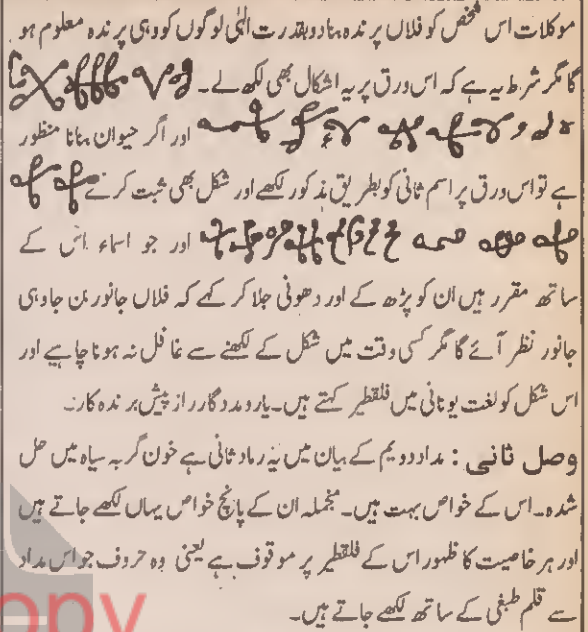 موکلات اس شخص کو فلاں پرندہ بنا دو بقدرت الٰہی لوگوں کو وہی پرندہ معلوم ہو
گا مگر شرط یہ ہے کہ اس ورق پر یہ اشکال بھی لکھ لے۔
اور اگر حیوان بنانا منظور
ہے تو اس ورق پر اسم ثانی کو بطریق مذکور لکھے اور شکل بھی ثبت کرے
اور جو اسماء اس کے
ساتھ مقرر ہیں ان کو پڑھ کے اور دھونی جلا کر کہے کہ فلاں جانور بن جا وہی
جانور نظر آئے گا مگر کسی وقت میں شکل کے لکھنے سے غافل نہ ہونا چاہیے اور
اس شکل کو لغت یونانی میں فلقطیر کہتے ہیں۔ یار و مددگار راز پیش برندہ کار۔
وصل ثانی : مداد دویم کے بیان میں یہ رماد ثانی ہے خون گربہ سیاہ میں حل
شدہ۔ اس کے خواص بہت ہیں۔ منجملہ ان کے پانچ خواص یہاں لکھے جاتے ہیں
اور ہر خاصیت کا ظہور اس کے فلقطیر پر موقوف ہے یعنی وہ حروف جو اس مداد
سے قلم طبغی کے ساتھ لکھے جاتے ہیں۔
opy